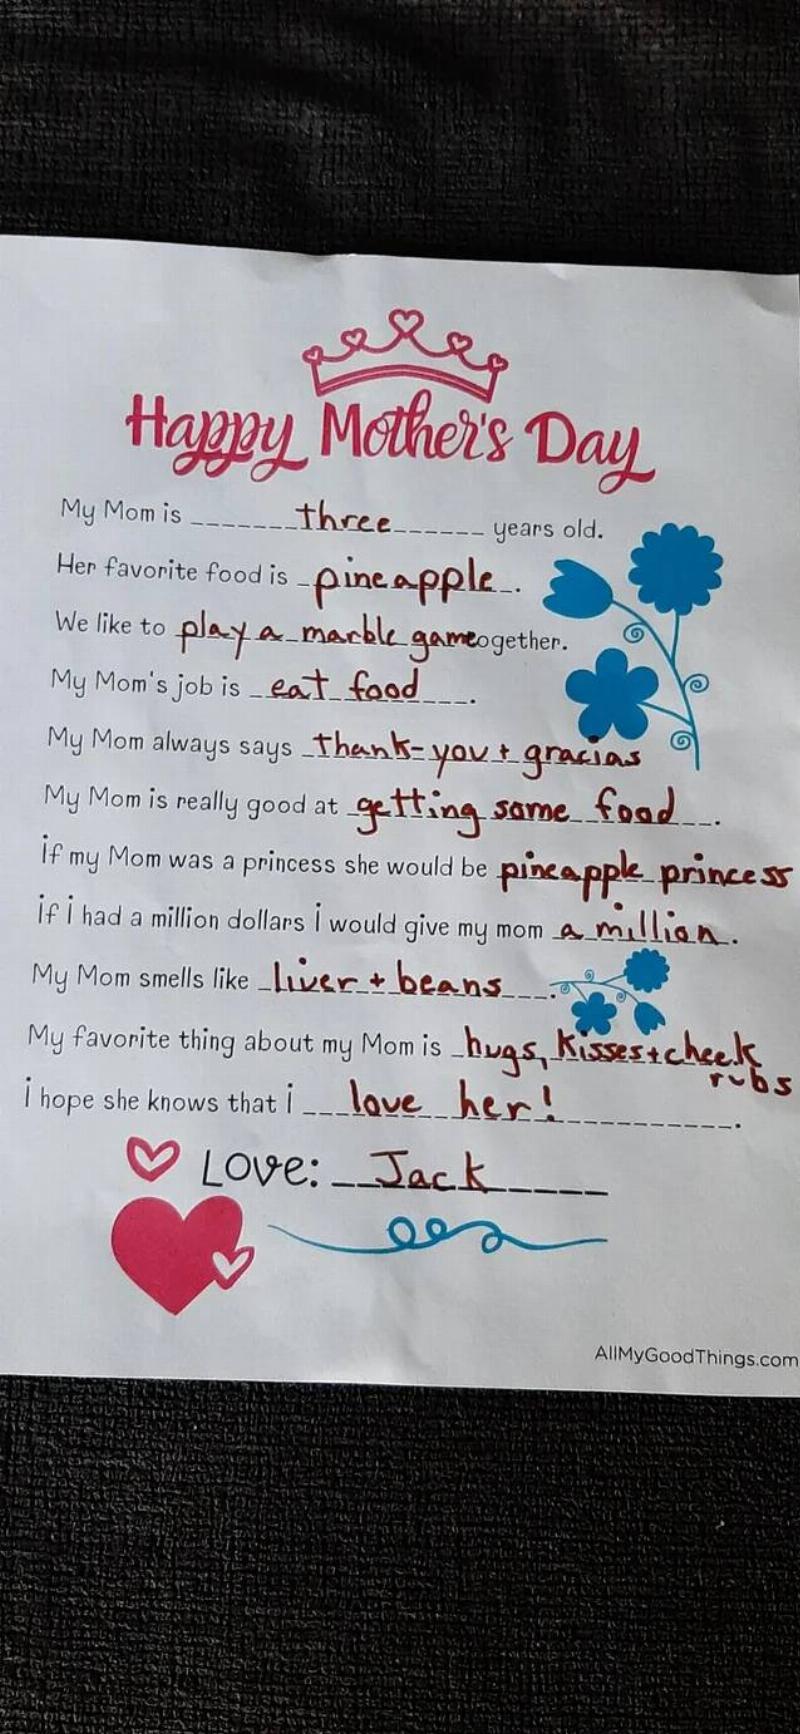 Happy Mother's Day
My Mom is three years old.
Her favorite food is pineapple.
We like to play a marble game together.
My Mom's job is eat food.
My Mom always says thank-you + gracias
My Mom is really good at getting some food.
if my Mom was a princess she would be pineapple princess
if i had a million dollars i would give my mom a million.
My Mom smells like liver + beans.
My favorite thing about my Mom is hugs, kisses + cheek
rubs
i hope she knows that i love her!.
Love: Jack
AllMyGoodThings.com